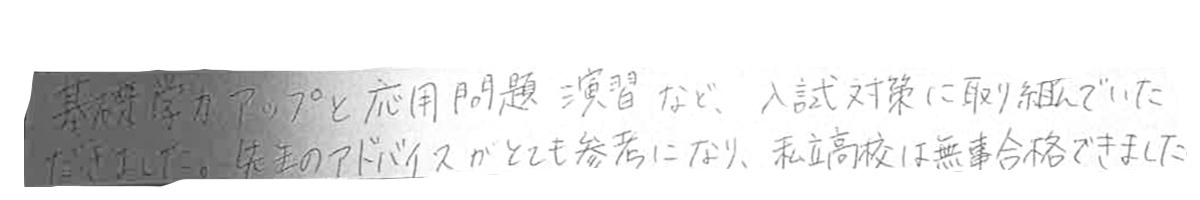 基礎学力アップと応用問題演習など、入試対策に取り組んでいた
だきました。先生のアドバイスがとても参考になり、私立高校は無事合格できました